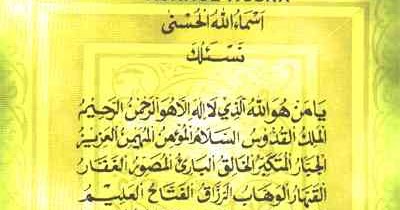 أَسْمَاءُ اللهِ الْحُسْنَى
نَسْئَلُكَ
يَا مَنْ هُوَ اللهُ الَّذِي لَا إِلٰهَ إِلَّا هُوَ الرَّحْمٰنُ الرَّحِيْمُ
الْمَلِكُ الْقُدُّوْسُ السَّلَامُ الْمُؤْمِنُ الْمُهَيْمِنُ الْعَزِيْزُ
الْجَبَّارُ الْمُتَكَبِّرُ الْخَالِقُ الْبَارِئُ الْمُصَوِّرُ الْغَفَّارُ
الْقَهَّارُ الْوَهَّابُ الرَّزَّاقُ الْفَتَّاحُ الْعَلِيْمُ